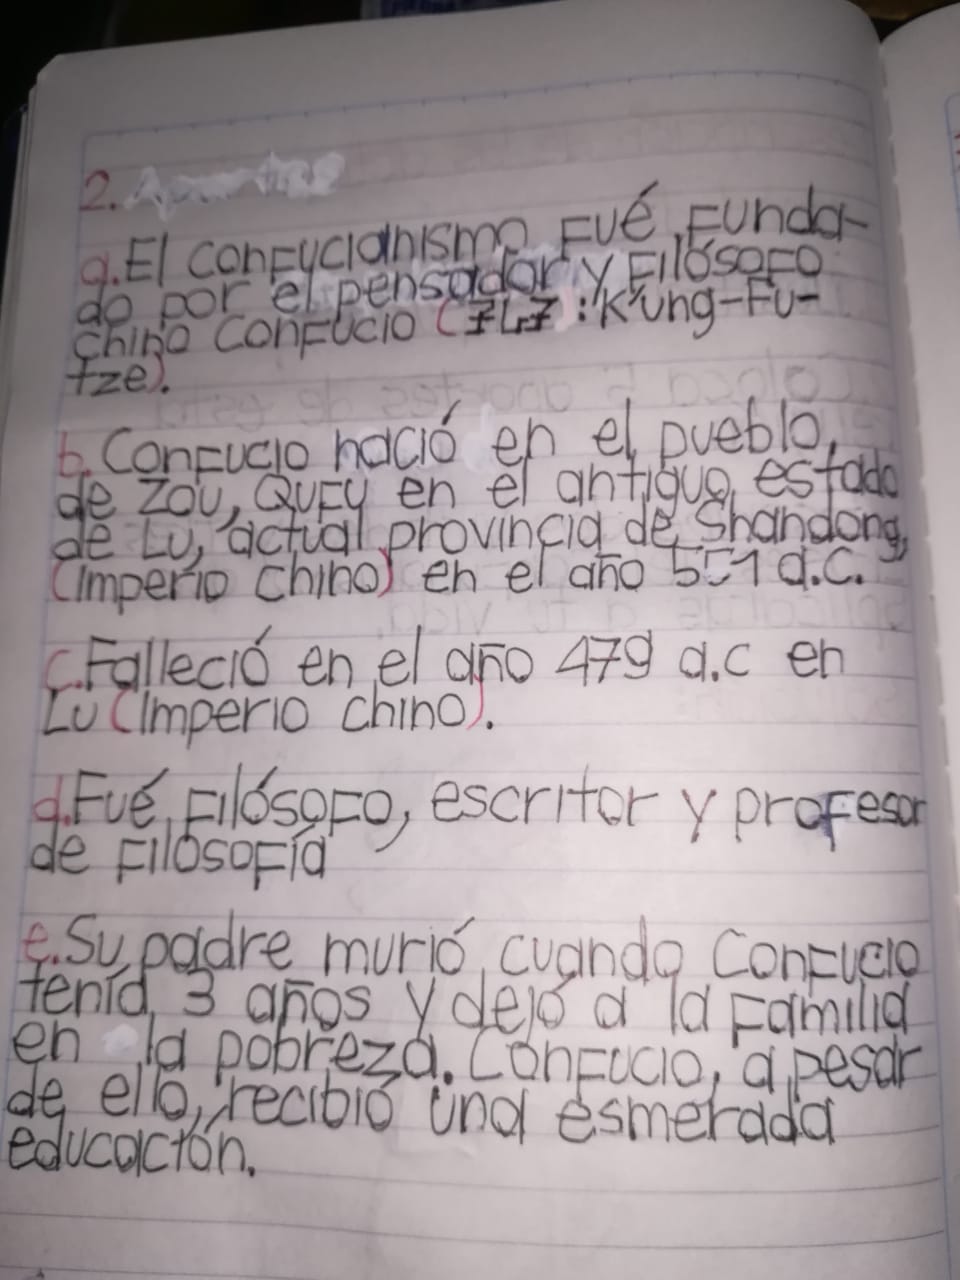 2. Apuntes
a. El confucianismo Fué Funda-
do por el pensador y Filósofo
chino Confucio ( : Kung-Fu-
tze).
b. Confucio nació en el pueblo,
de Zou, Qufu en el antiguo estado
de Lu, actual provincia de Shandong,
(Imperio Chino) en el año 551 a.c.
c. Falleció en el año 479 a.c en
Lu (Imperio chino).
d. Fué Filósofo, escritor y profesor
de Filosofía
e. Su padre murió cuando Confucio
tenía 3 años y dejó a la Familia
en la pobreza. Confucio, a pesar
de ello, recibió una esmerada
educación.